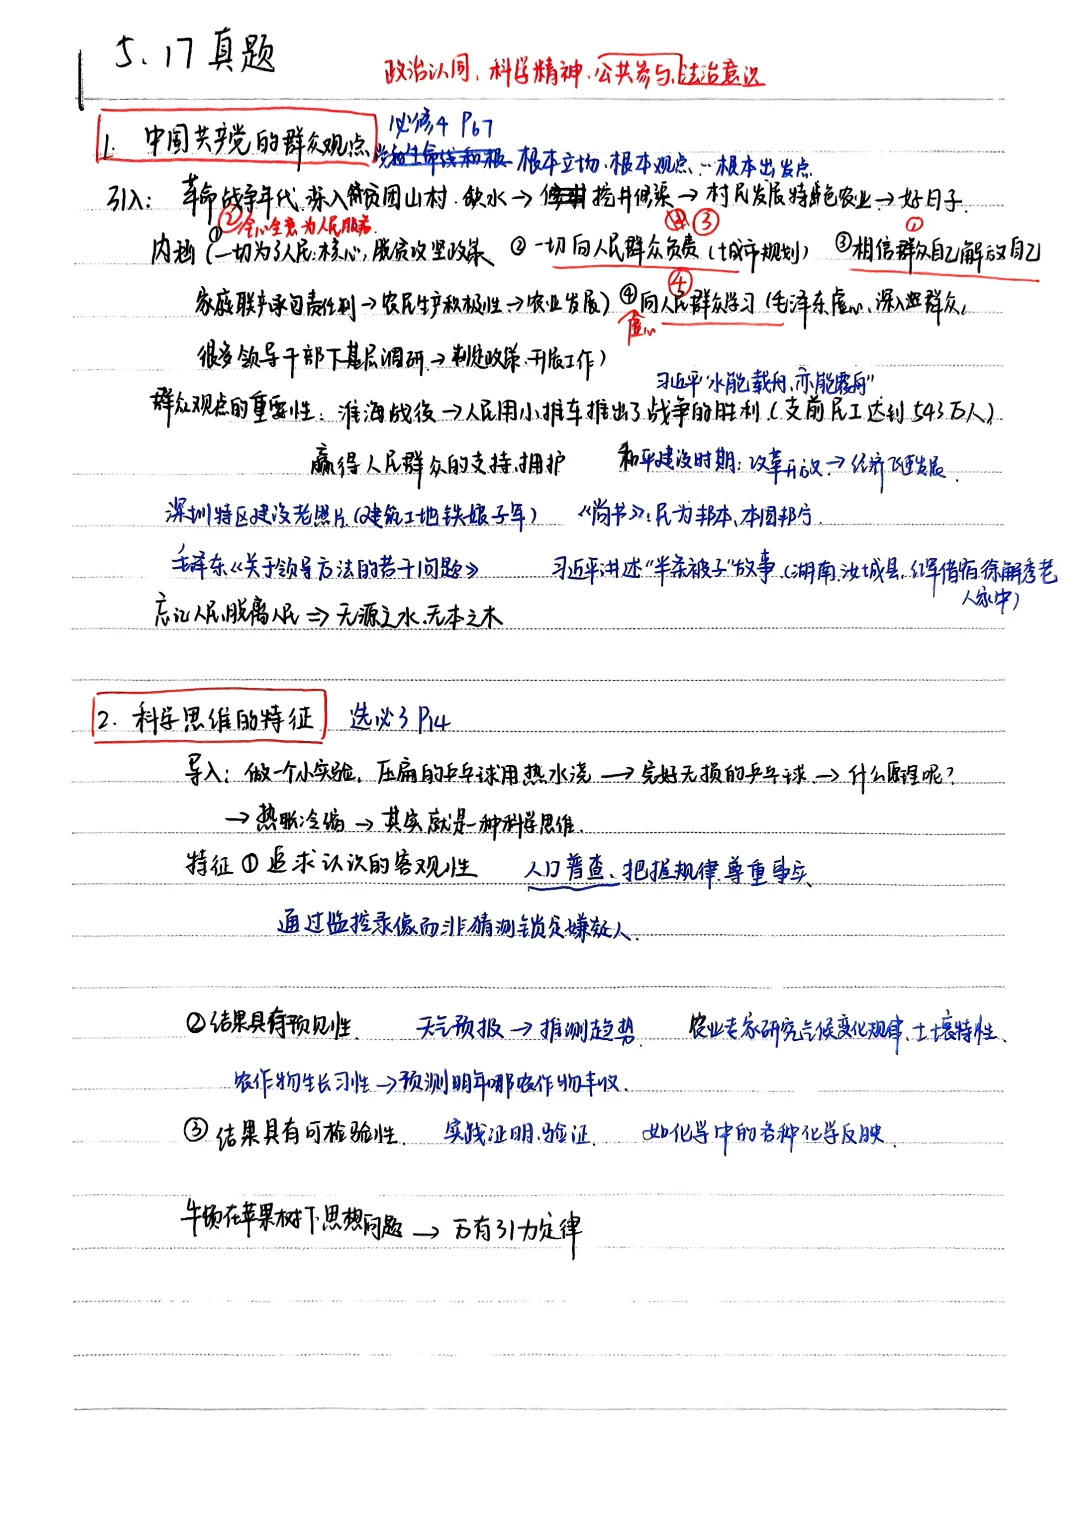 5.17真题
政治认同、科学精神、公共参与、法治意识
1. 中国共产党的群众观点 必修4 P67
根本立场、根本观点、根本出发点
引入：革命战争年代、深入贫困山村、饮水→挖井修渠→村民发展特色农业→好日子
②全心全意为人民服务
④ ③ ①
内涵（①一切为了人民：核心，脱贫攻坚政策 ②一切向人民群众负责（城市规划） ③相信群众自己解放自己
④
家庭联产承包责任制→农民生产积极性→农业发展） ④向人民群众学习（毛泽东虚心、深入群众，
虚心
很多领导干部下基层调研→制定政策、开展工作）
习近平“水能载舟，亦能覆舟”
群众观点的重要性：淮海战役→人民用小推车推出了战争的胜利（支前民工达到543万人）
赢得人民群众的支持、拥护 和平建设时期：改革开放→经济飞速发展
深圳特区建设老照片（建筑工地铁娘子军） 《尚书》：民为邦本、本固邦宁
毛泽东《关于领导方法的若干问题》 习近平讲述“半条被子”故事（湖南汝城县，红军借宿徐解秀老
人家中）
忘记人民、脱离人民⇒无源之水、无本之木
2. 科学思维的特征 选必3 P14
导入：做一个小实验，压扁的乒乓球用热水浇→完好无损的乒乓球→什么原理呢？
→热胀冷缩→其实就是一种科学思维
特征①追求认识的客观性 人口普查、把握规律、尊重事实
通过监控录像而非猜测锁定嫌疑人
②结果具有预见性 天气预报→推测趋势 农业专家研究气候变化规律、土壤特性、
农作物生长习性→预测明年哪农作物丰收
③结果具有可检验性 实践证明、验证 如化学中的各种化学反映
牛顿在苹果树下思想问题→万有引力定律